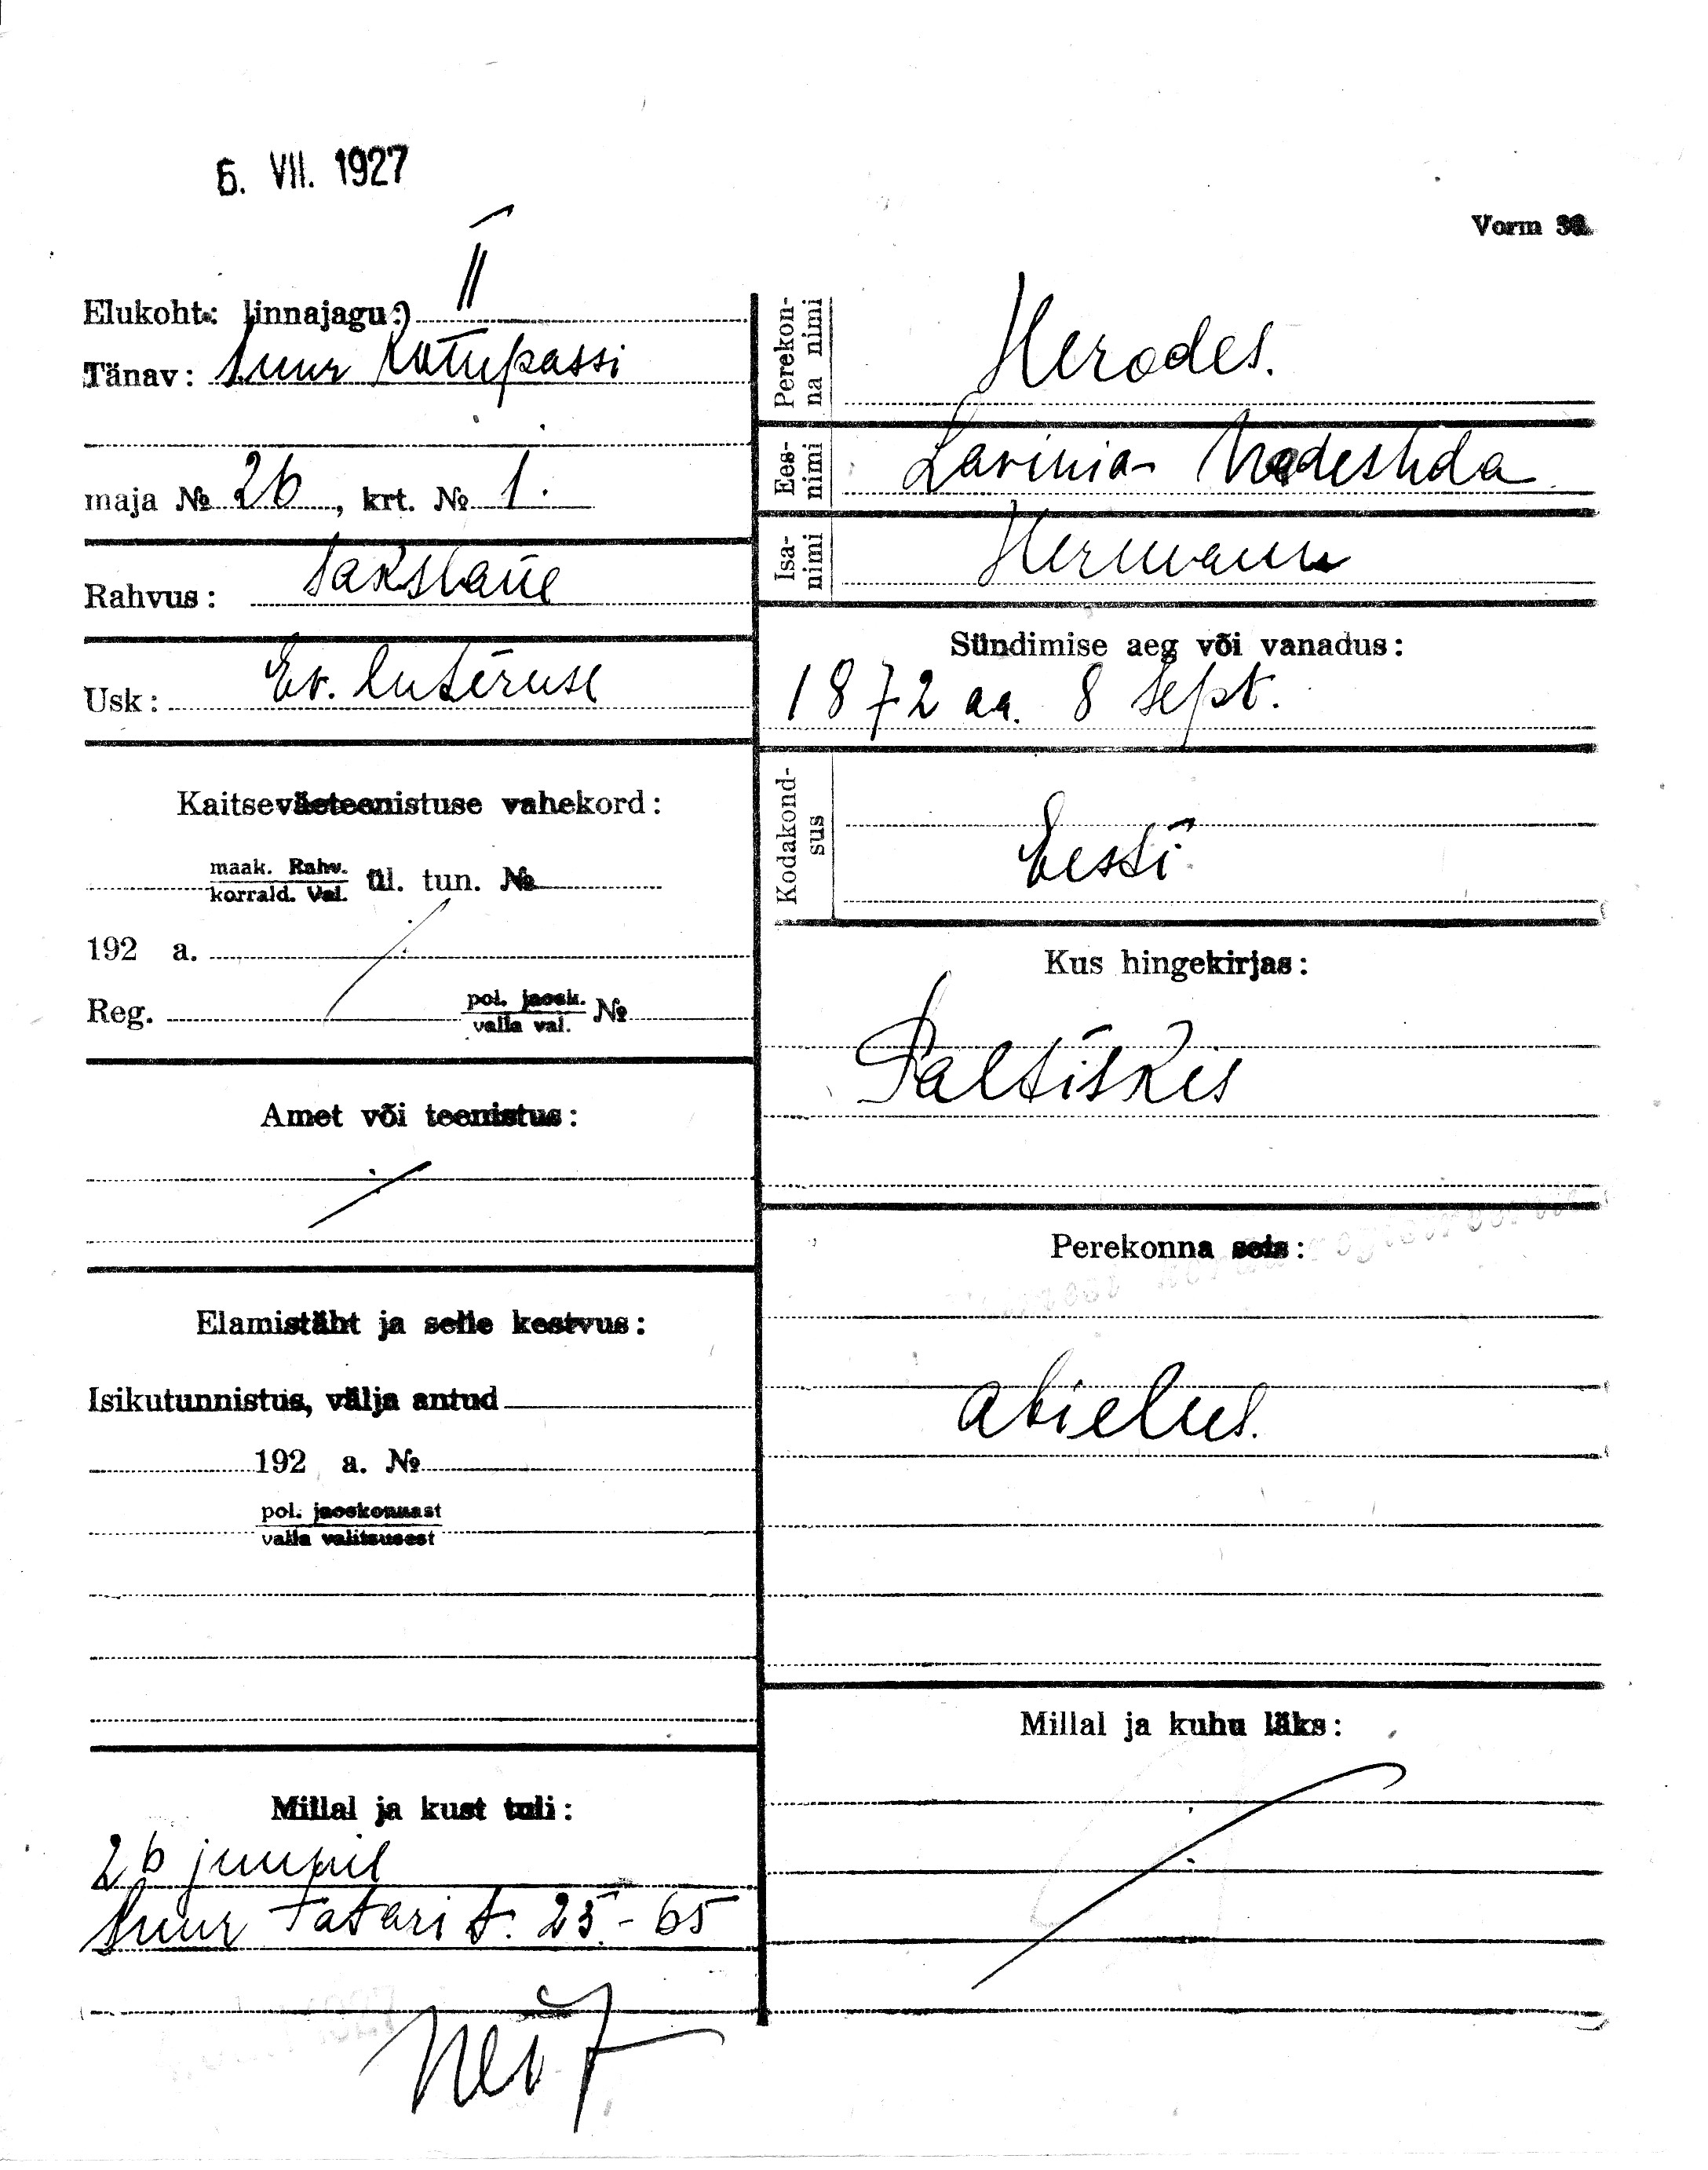 6. VII. 1927
Vorm
Elukoht: linnajagu: II
Tänav: Suur Kompassi
maja № 26, krt. № 1.
Rahvus: sakslane
Usk: Ev. luteruse
Kaitseväeteenistuse vahekord:
maak. Rahv.
korrald. Val. ül. tun. №
192 a.
Reg. pol. jaosk. №
valla val.
Amet või teenistus: /
Elamistäht ja selle kestvus:
Isikutunnistus, välja antud
192 a. №
pol. jaoskonnast
valla valitsusest
Millal ja kust tuli:
26 juunil
Suur Tatari t. 25-65
Perekon-
na nimi Herodes.
Ees-
nimi Lavinia Nadeshda
Isa-
nimi Hermann
Sündimise aeg või vanadus:
1872 aa. 8 sept.
Kodakond-
sus Eesti
Kus hingekirjas:
Paltiskis
Perekonna seis:
abielus.
Millal ja kuhu läks: